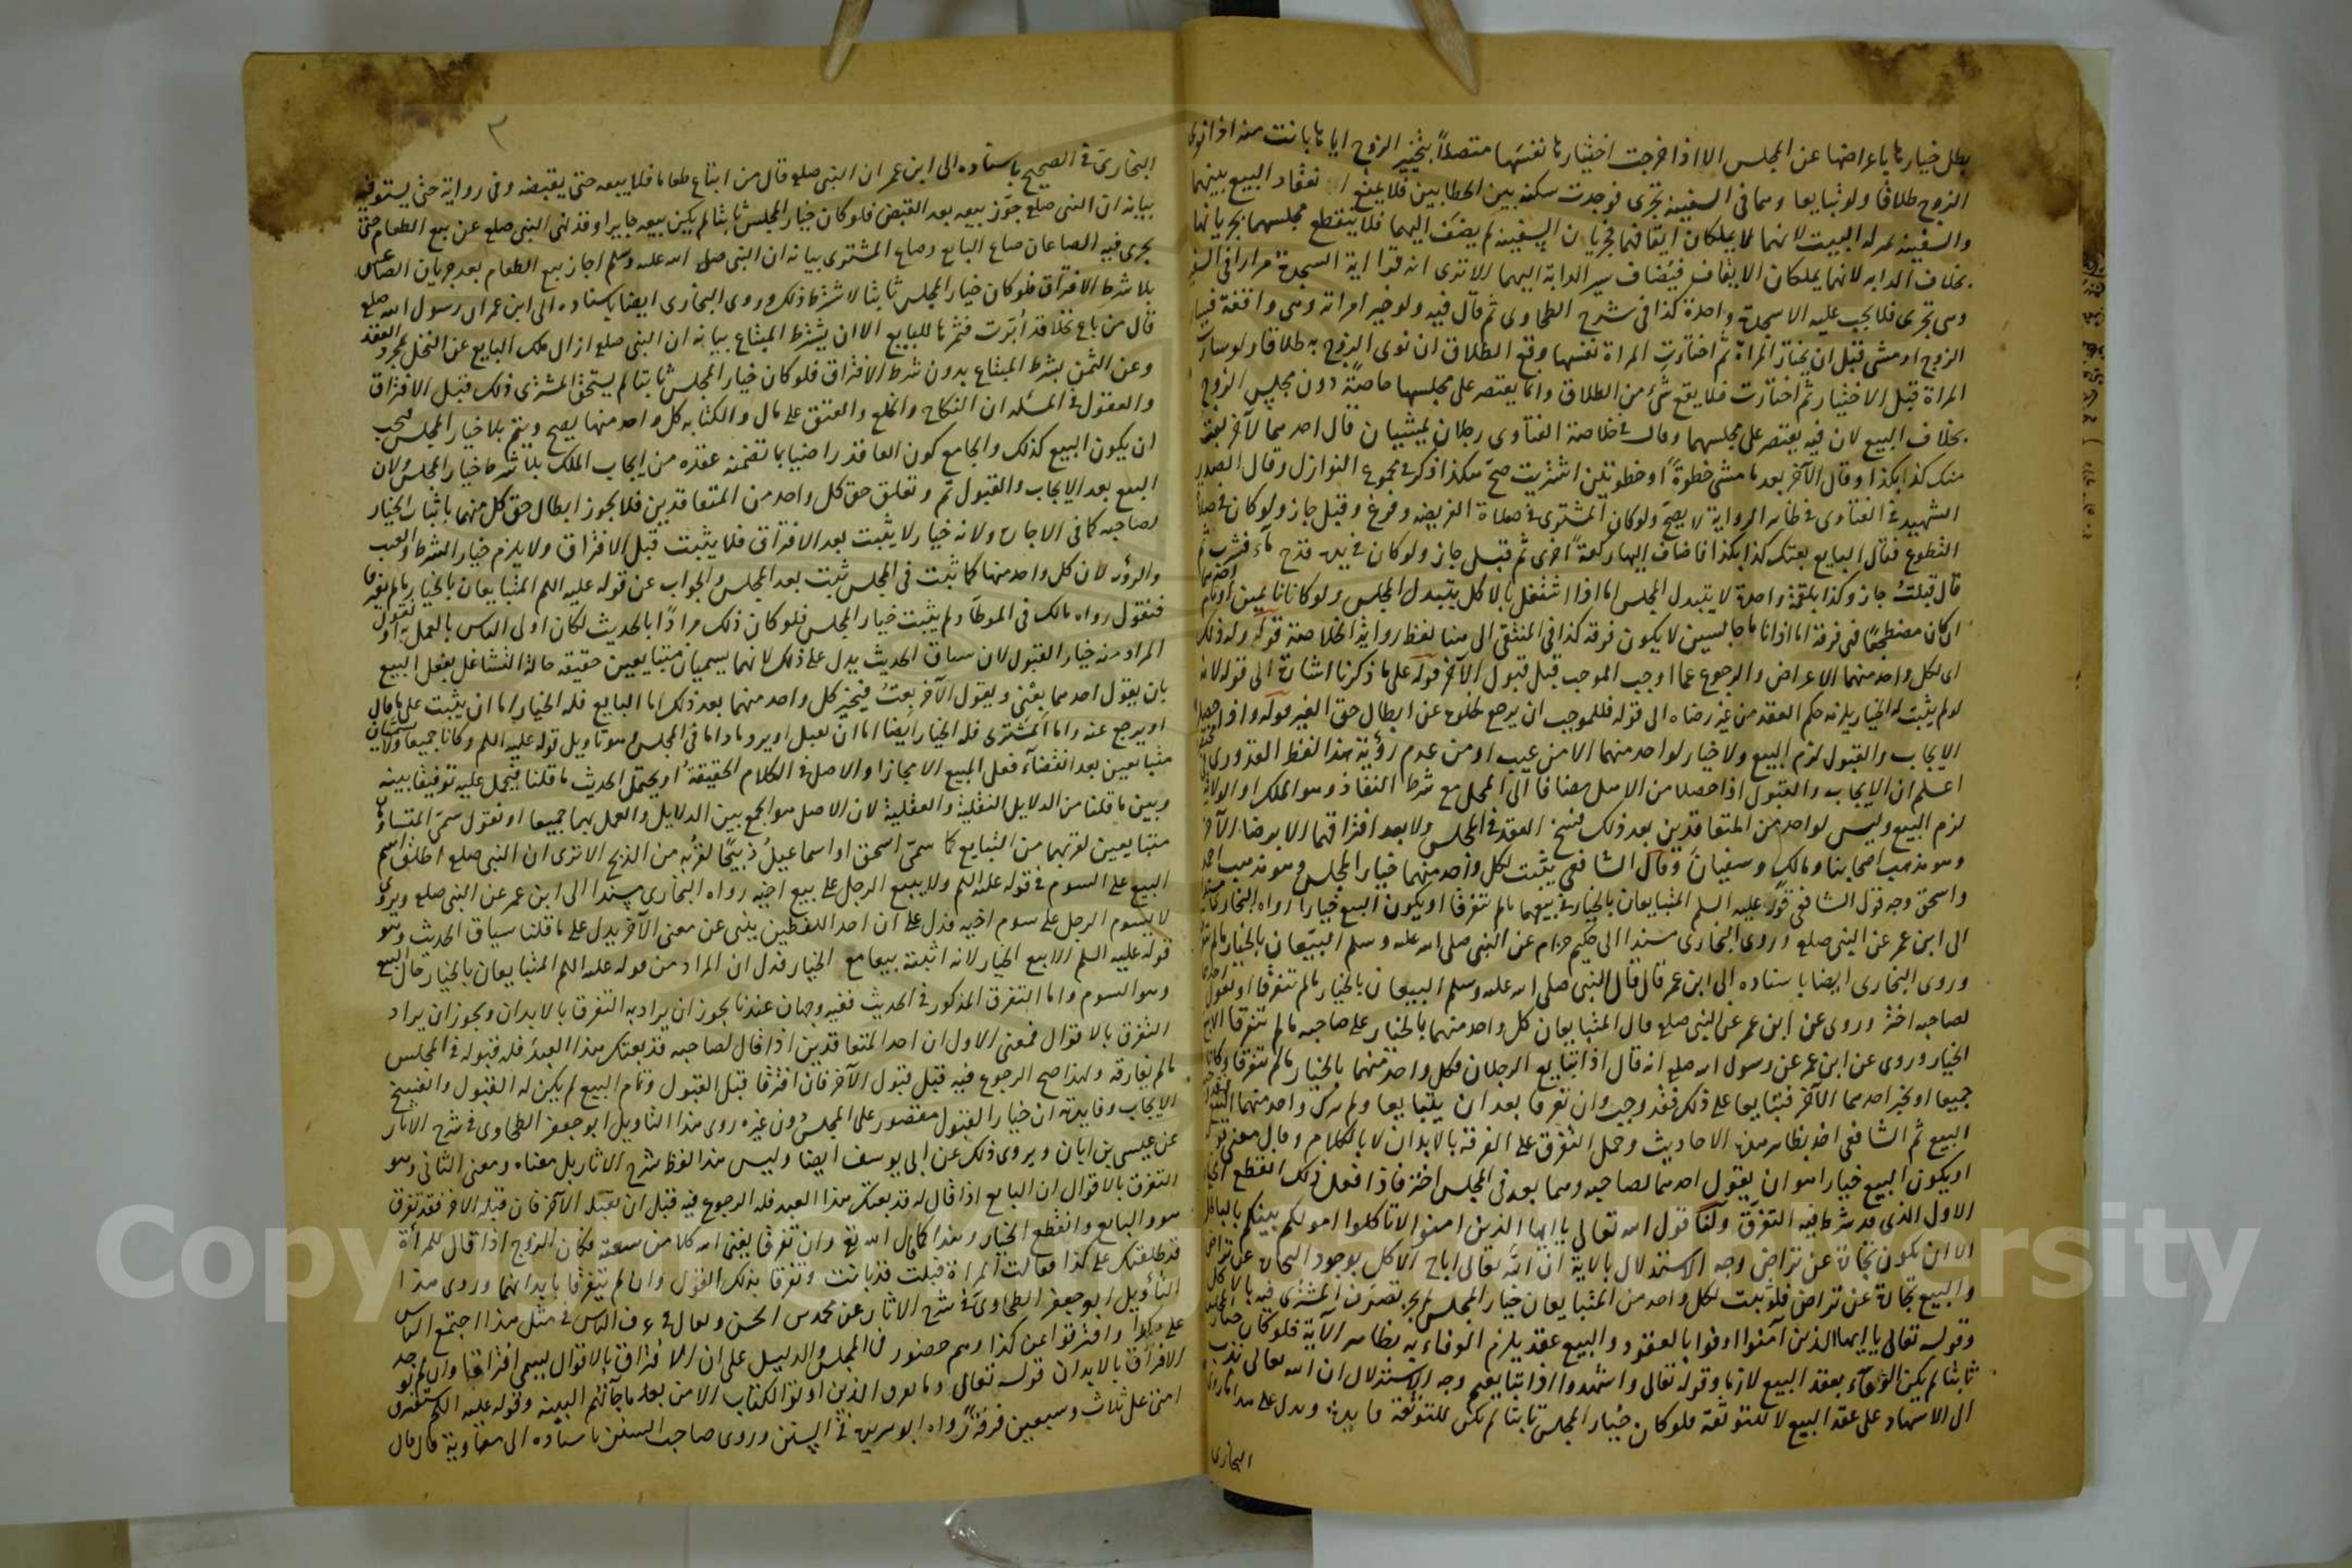 يبطل خيارها باعراضها عن المجلس الا اذا خرجت اختيارها نفسها متصلاً بتخيير الزوج اياها بانت منه اذا نوى
الزوج طلاقا ولو تبايعا وهما في السفينة تجرى فوجدت سكتة بين الخطابين فلا يمنع انعقاد البيع بينهما
والسفينة بمنزلة البيت لانهما لا يملكان ايقافها فجريان السفينة لم يضف اليهما فلا ينقطع مجلسهما بجريانها
بخلاف الدابه لانهما يملكان الايقاف فيضاف سير الدابة اليهما الا ترى انه قرا اية السجدة مرارا في السفينة
وهى تجرى فلا يجب عليه الا سجدة واحدة كذا في شرح الطحاوى ثم قال فيه ولو خير امراته وهى واقفة فسار
الزوج او مشى قبل ان يختار المراة ثم اختارت المراة نفسها وقع الطلاق ان نوى الزوج به طلاقا ولو سارت
المراة قبل الاختيار ثم اختارت فلا يقع شئ من الطلاق وانما يقتصر على مجلسها خاصة دون مجلس الزوج
بخلاف البيع لان فيه يقتصر على مجلسهما وقال في خلاصة الفتاوى رجلان يمشيان قال احدهما لآخر بعت
منك كذا بكذا وقال الآخر بعد ما مشى خطوة او خطوتين اشتريت صح هكذا ذكر في مجموع النوازل وقال الصدر
الشهيد في الفتاوى في ظاهر الرواية لا يصح ولو كان المشترى في صلاة الفريضه وفرغ وقبل جاز ولو كان في صلاة
التطوع فقال البايع بعتك كذا بكذا فاضاف اليها ركعة اخرى ثم قبل جاز ولو كان في يده قدح ماء فشرب ثم
قال قبلت جاز وكذا بلقمة واحدة لا يتبدل المجلس اما اذا اشتغل بالاكل يتبدل المجلس ولو كانا نائمين او نام احدهما
ان كان مضطجعا فهى فرقة اما اذا ناما جالسين لا يكون فرقة كذا في المنتقى الى هنا لفظ رواية الخلاصة قوله وله ذلك
اى لكل واحد منهما الاعراض والرجوع عما اوجب الموجب قبل قبول الآخر قوله على ما ذكرنا اشارة الى قوله لانه
لو لم يثبت له الخيار يلزمه حكم العقد من غير رضاه الى قوله فللموجب ان يرجع لخلوه عن ابطال حق الغير قوله واذا حصل
الايجاب والقبول لزم البيع ولا خيار لواحد منهما الا من عيب او من عدم رؤية هذا لفظ القدورى
اعلم ان الايجاب والقبول اذا حصلا من الاهل مضافا الى المحل مع شرط النفاذ وهو الملك او الولاية
لزم البيع وليس لواحد من المتعاقدين بعد ذلك فسخ العقد في المجلس ولا بعد افتراقهما الا برضا الآخر
وهو مذهب اصحابنا ومالك وسفيان وقال الشافعى يثبت لكل واحد منهما خيار المجلس وهو مذهب احمد
واسحق وجه قول الشافعى قوله عليه السلم المتبايعان بالخيار في بيعهما ما لم يتفرقا او يكون البيع خيارا رواه البخارى مسندا
الى ابن عمر عن النبى صلعم وروى البخارى مسندا الى حكيم حزام عن النبى صلى الله عليه وسلم البيعان بالخيار ما لم يتفرقا
وروى البخارى ايضا باسناده الى ابن عمر قال قال النبى صلى الله عليه وسلم البيعان بالخيار ما لم يتفرقا او يقول احدهما
لصاحبه اختر وروى عن ابن عمر عن النبى صلعم قال المتبايعان كل واحد منهما بالخيار على صاحبه ما لم يتفرقا الا بيع
الخيار وروى عن ابن عمر عن رسول الله صلعم انه قال اذا تبايع الرجلان فكل واحد منهما بالخيار ما لم يتفرقا وكانا
جميعا او يخير احدهما الآخر فتبايعا على ذلك فقد وجب وان تفرقا بعد ان يتبايعا ولم يترك واحد منهما البيع فقد وجب
البيع ثم الشافعى اخذ بظاهر هذه الاحاديث وحمل التفرق على الفرقة بالابدان لا بالكلام وقال معنى قوله
او يكون البيع خيارا هو ان يقول احدهما لصاحبه وهما بعد في المجلس اختر فاذا فعل ذلك انقطع الخيار
الاول الذى قد شرط فيه التفرق ولنا قول الله تعالى يا ايها الذين امنوا لا تاكلوا اموالكم بينكم بالباطل
الا ان يكون تجارة عن تراض وجه الاستدلال بالاية ان الله تعالى اباح الاكل بوجود التجارة عن تراض
والبيع تجارة عن تراض فلو ثبت لكل واحد من المتبايعان خيار المجلس لم يجز تصرف المشترى فيه بالاكل
وقوله تعالى يا ايها الذين آمنوا اوفوا بالعقود والبيع عقد يلزم الوفاء به بظاهر الآية فلو كان خيار المجلس
ثابتا لم يكن الوفاء بعقد البيع لازما وقوله تعالى واشهدوا اذا تبايعتم وجه الاستدلال ان الله تعالى ندب
الى الاشهاد على عقد البيع للتوثقة فلو كان خيار المجلس ثابتا لم يكن للتوثقة فايدة ويدل على هذا
البخارى
٢
البخارى في الصحيح باسناده الى ابن عمر ان النبى صلعم قال من ابتاع طعاما فلا يبيعه حتى يقبضه وفى رواية حتى يستوفيه
بيانه ان النبى صلعم جوز بيعه بعد القبض فلو كان خيار المجلس ثابتا لم يكن بيعه جايزا وقد نهى النبى صلعم عن بيع الطعام حتى
يجرى فيه الصاعان صاع البايع وصاع المشترى بيانه ان النبى صلى الله عليه وسلم اجاز بيع الطعام بعد جريان الصاعين
بلا شرط الافتراق فلو كان خيار المجلس ثابتا لاشترط ذلك وروى البخارى ايضا باسناده الى ابن عمر ان رسول الله صلعم
قال من باع نخلا قد أبرت فثمرها للبايع الا ان يشترط المبتاع بيانه ان النبى صلعم ازال ملك البايع عن النخل بمجرد العقد
وعن الثمر بشرط المبتاع بدون شرط الافتراق فلو كان خيار المجلس ثابتا لم يستحق المشترى ذلك قبل الافتراق
والمعقول في المسئله ان النكاح والخلع والعتق على مال والكتابه كل واحد منها يصح ويتم بلا خيار المجلس فيجب
ان يكون البيع كذلك والجامع كون العاقد راضيا بما تضمنه عقده من ايجاب الملك بلا شرط خيار المجلس ولان
البيع بعد الايجاب والقبول تم وتعلق حق كل واحد من المتعاقدين فلا يجوز ابطال حق كل منهما باثبات الخيار
لصاحبه كما في الاجارة ولانه خيار لا يثبت بعد الافتراق فلا يثبت قبل الافتراق ولا يلزم خيار الشرط والعيب
والرؤيه لان كل واحد منها كما ثبت في المجلس ثبت بعد المجلس والجواب عن قوله عليه السلم المتبايعان بالخيار ما لم يتفرقا
فنقول رواه مالك في الموطآ ولم يثبت خيار المجلس فلو كان ذلك مرادا بالحديث لكان اولى الناس بالعمل به او نقول
المراد منه خيار القبول لان سياق الحديث يدل على ذلك لانهما يسميان متبايعين حقيقه حالة التشاغل بفعل البيع
بان يقول احدهما بعنى ويقول الآخر بعت فيخير كل واحد منهما بعد ذلك اما البايع فله الخيار اما ان يثبت على ما قال
او يرجع عنه واما المشترى فله الخيار ايضا اما ان يقبل او يرد ما داما في المجلس وهو تاويل قوله عليه السلم وكانا جميعا ولا يسميان
متبايعين بعد انقضآء فعل البيع الا مجازا والاصل في الكلام الحقيقة او يحتمل الحديث ما قلنا فيحمل عليه توفيقا بينه
وبين ما قلنا من الدلايل النقلية والعقلية لان الاصل هو الجمع بين الدلايل والعمل بهما جميعا او نقول سمى المتساومان
متبايعين لقربهما من التبايع كما سمى اسحق او اسماعيل ذبيحا لقربه من الذبح الا ترى ان النبى صلعم اطلق اسم
البيع على السوم في قوله عليه السلم ولا يبيع الرجل على بيع اخيه رواه البخارى مسندا الى ابن عمر عن النبى صلعم ويروى
لا يسوم الرجل على سوم اخيه فدل على ان احد اللفظين ينبى عن معنى الآخر يدل على ما قلنا سياق الحديث وهو
قوله عليه السلم الا بيع الخيار لانه اثبته بيعا مع الخيار فدل ان المراد من قوله عليه السلم المتبايعان بالخيار حال البيع
وهو السوم واما التفرق المذكور في الحديث ففيه وجهان عندنا يجوز ان يراد به التفرق بالابدان ويجوز ان يراد
التفرق بالاقوال فمعنى الاول ان احد المتعاقدين اذا قال لصاحبه قد بعتك هذا العبد فله قبوله في المجلس
ما لم يفارقه ولهذا صح الرجوع فيه قبل قبول الآخر فان افترقا قبل القبول وتمام البيع لم يكن له القبول وانفسخ
الايجاب وفايدته ان خيار القبول مقصور على المجلس دون غيره روى هذا التاويل ابو جعفر الطحاوى في شرح الاثار
عن عيسى بن ابان ويروى ذلك عن ابى يوسف ايضا وليس هذا لفظ شرح الاثار بل معناه ومعنى الثانى وهو
التفرق بالاقوال ان البايع اذا قال له قد بعتك هذا العبد فله الرجوع فيه قبل ان يقبله الآخر فان قبله الاخر فقد تفرق
هو والبايع وانقطع الخيار وهذا كما قال الله تع وان تفرقا يغنى الله كلا من سعته فكان الزوج اذا قال للمرأة
قد طلقتك على كذا فقالت المراة قبلت فقد بانت وتفرقا بذلك القول وان لم يتفرقا بابدانهما وروى هذا
التأويل ابو جعفر الطحاوى في شرح الاثار عن محمد بن الحسن ويقال في عرف الناس في مثل هذا اجتمع الناس
على كذا وافترقوا عن كذا وهم حضور في المجلس والدليل على ان الافتراق بالاقوال يسمى افتراقا وان لم يوجد
الافراق بالابدان قوله تعالى وما تفرق الذين اوتوا الكتاب الا من بعد ما جآئتهم البينه وقوله عليه السلم ستفترق
امتى على ثلاث وسبعين فرقة رواه ابو هريرة في السنن وروى صاحب السنن باسناده الى معاوية قال قال
Copy
University